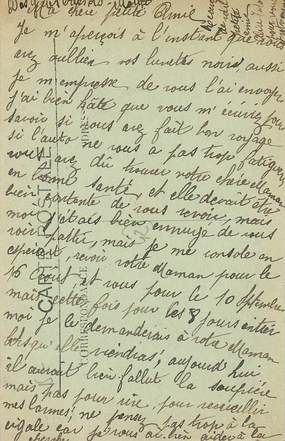 Ma chère petite Amie
Je m'aperçois à l'instant que vous
avez oublier vos lunettes noires, aussi
je m'empresse de vous l'ai envoyer
j'ai bien hâte que vous m'écrivez pour
savoir si vous avez fait bon voyage
si l'auto ne vous a pas trop fatiguée
vous avez dû trouver votre chère Maman
en bonne santé, et elle devait être
bien contente de vous revoir, mais
moi j'étais bien ennuyé de vous
voir partir, mais je me console en
espérant revoir votre Maman pour le
16 Août et vous pour le 10 septembre
mais cette fois pour les 8 jours entier
moi je le demanderais à votre Maman
lorsqu'elle viendras; aujourd'hui
il aurait bien fallut la soupière
mais pas pour rire, pour recueillir
mes larmes; ne pensez pas trop à la
cigale car je vous ai bien aidée à la
CARTE POSTALE
CORRESPONDANCE
ADRESSE